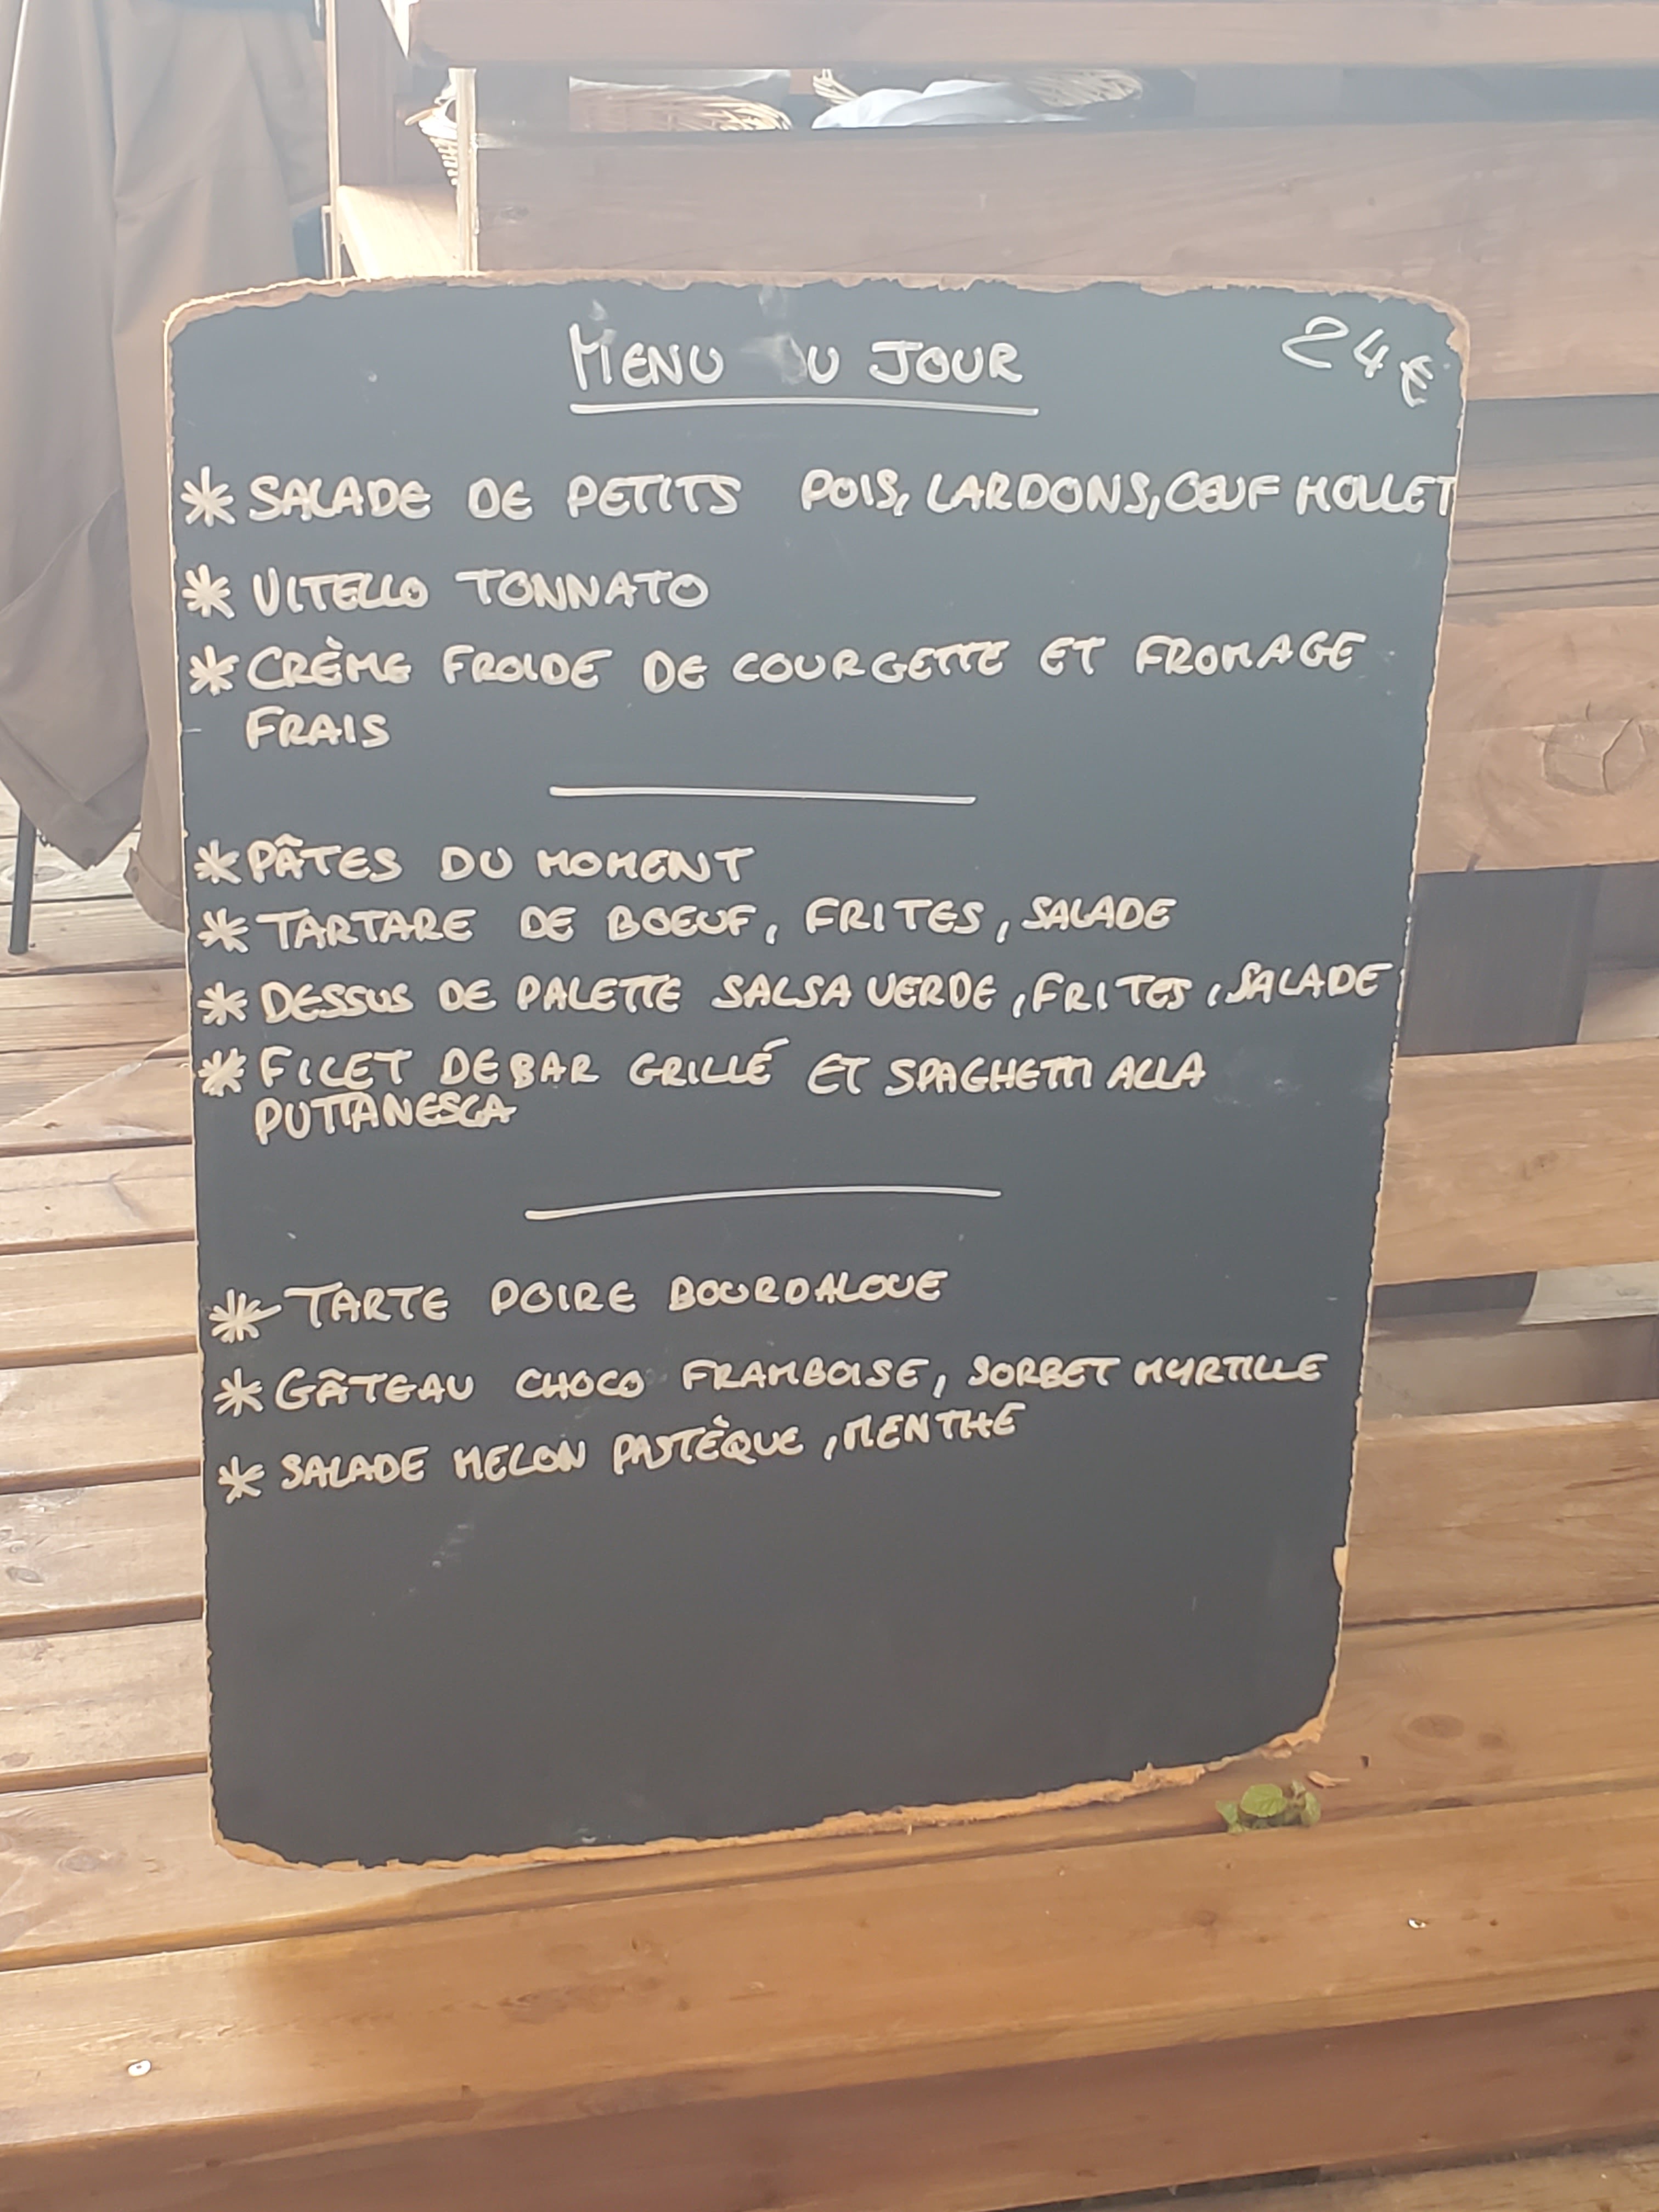 MENU U JOUR 24€
* SALADE DE PETITS POIS, LARDONS, ŒUF MOLLET
* VITELLO TONNATO
* CRÈME FROIDE DE COURGETTE ET FROMAGE
FRAIS
* PÂTES DU MOMENT
* TARTARE DE BOEUF, FRITES, SALADE
* DESSUS DE PALETTE SALSA VERDE, FRITES, SALADE
* FILET DE BAR GRILLÉ ET SPAGHETTI ALLA
PUTTANESCA
* TARTE POIRE BOURDALOUE
* GÂTEAU CHOCO FRAMBOISE, SORBET MYRTILLE
* SALADE MELON PASTÈQUE, MENTHE